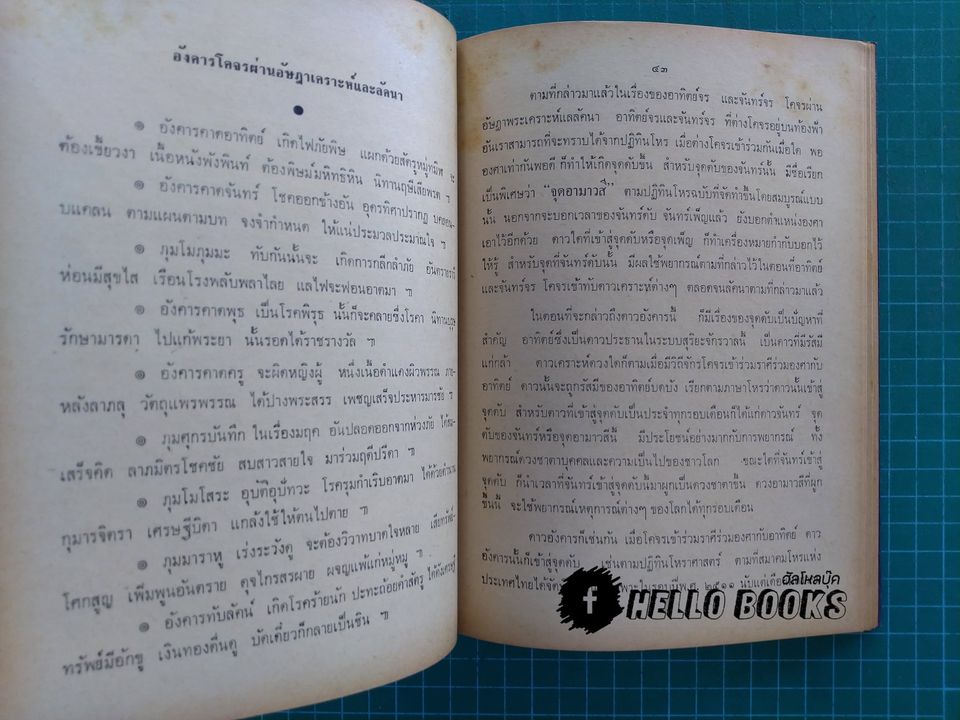 อังคารโคจรผ่านอัษฎาเคราะห์และลัคนา
๏ อังคารคาดอาทิตย์ เกิดไฟภัยพิษ แผกด้วยสัตรูหมู่ทมิฬ จะ
ต้องเขี้ยวงา เนื้อหนังพังพินท์ ต้องพิษม์มหิทธิหิน นิทานฤษีเสียพรต ฯ
๏ อังคารคาดจันทร์ โชคออกข้างอ่อน อุดรทิศาปรากฏ
บแคลน ตามแผนตามบท จงจำกำหนด ให้แน่ประมวลประมาณใจ ฯ
๏ ภุมโมภุมมะ ทับกันนั้นจะ เกิดการกลีกลำภัย
ห่อนมีสุขไส เรือนโรงพลับพลาไลย แลไฟจะฟอนอาตมา ฯ
๏ อังคารคาดพุธ เป็นโรคพิรุธ นั้นก็จะคลายซึ่งโรคา นิทาน
รักษามารดา ไปแก้พระยา นั้นรอดได้ราชรางวัล ฯ
๏ อังคารคาดครู จะผิดหญิงผู้ หนึ่งเนื้อดำแดงผิวพรรณ
หลังลาภลุ วัตถุแพรพรรณ ได้ปางพระสรร เพชญเสร็จประหารมารชัย ฯ
๏ ภุมศุกรบันทึก ในเรื่องมฤค อันปลอดออกจากห่วงภัย
เสร็จคิด ลาภมิตรโชคชัย สบสาวสายใจ มาร่วมฤดีปรีดา ฯ
๏ ภุมโมโสระ อุบัติอุปัทวะ โรครุมกำเริบอาตมา
กุมารจิตรา เศรษฐีบิดา แกล้งใช้ให้ตนไปตาย ฯ
๏ ภุมมาราหู เร่งระวังดู จะต้องวิวาทบาดใจหลาย
โศกสูญ เพิ่มพูนอันตราย ดุจไกรสรผาย ผจญแพ้แก่หมู่หมู ฯ
๏ อังคารทับลัคน์ เกิดโรคร้ายนัก ปะทะถ้อยคำสัตรู
ทรัพย์มีอักขู เงินทองตื่นดู บัดเดี๋ยวก็กลายเป็นชิน ฯ
๔๓
ตามที่กล่าวมาแล้วในเรื่องของอาทิตย์จร และจันทร์จร โคจรผ่าน
อัษฎาพระเคราะห์แลลัคนา อาทิตย์จรและจันทร์จร ที่ต่างโคจรอยู่บนท้องฟ้า
อันเราสามารถที่จะทราบได้จากปฏิทินโหร เมื่อต่างโคจรเข้าร่วมกันเมื่อใด พอ
องศาเท่ากันพอดี ก็ทำให้เกิดจุดดับขึ้น สำหรับจุดดับของจันทร์นั้น มีชื่อเรียก
เป็นพิเศษว่า “จุดอามาวสี” ตามปฏิทินโหรฉบับที่จัดทำขึ้นโดยสมบูรณ์แบบ
นั้น นอกจากจะบอกเวลาของจันทร์ดับ จันทร์เพ็ญแล้ว ยังบอกตำแหน่งองศา
เอาไว้อีกด้วย ดาวใดที่เข้าสู่จุดดับหรือจุดเพ็ญ ก็ทำเครื่องหมายกำกับบอกไว้
ให้รู้ สำหรับจุดที่จันทร์ดับนั้น มีผลใช้พยากรณ์ตามที่กล่าวไว้ในตอนที่อาทิตย์
และจันทร์จร โคจรเข้าทับดาวเคราะห์ต่างๆ ตลอดจนลัคนาตามที่กล่าวมาแล้ว
ในตอนที่จะกล่าวถึงดาวอังคารนี้ ก็มีเรื่องของจุดดับเป็นปัญหาที่
สำคัญ อาทิตย์ซึ่งเป็นดาวประธานในระบบสุริยะจักรวาลนี้ เป็นดาวที่มีรัสมี
แก่กล้า ดาวเคราะห์ดวงใดก็ตามเมื่อมีวิถีจักรโคจรเข้าร่วมราศีร่วมองศากับ
อาทิตย์ ดาวนั้นจะถูกรัสมีของอาทิตย์บดบัง เรียกตามภาษาโหรว่าดาวนั้นเข้าสู่
จุดดับ สำหรับดาวที่เข้าสู่จุดดับเป็นประจำทุกรอบเดือนก็ได้แก่ดาวจันทร์ จุด
ดับของจันทร์หรือจุดอามาวสีนี้ มีประโยชน์อย่างมากกับการพยากรณ์ ทั้ง
พยากรณ์ดวงชาตาบุคคลและความเป็นไปของชาวโลก ขณะใดที่จันทร์เข้าสู่
จุดดับ ก็นำเวลาที่จันทร์เข้าสู่จุดดับนั้นมาผูกเป็นดวงชาตาขึ้น ดวงอามาวสีที่ผูก
ขึ้นนี้ จะใช้พยากรณ์เหตุการณ์ต่างๆ ของโลกได้ทุกรอบเดือน
ดาวอังคารก็เช่นกัน เมื่อโคจรเข้าร่วมราศีร่วมองศากับอาทิตย์ ดาว
อังคารนั้นก็เข้าสู่จุดดับ เช่นตามปฏิทินโหราศาสตร์ ตามที่สมาคมโหรแห่ง
ประเทศไทยได้จัด ในรอบปีพ.ศ. ๒๕๑๑ นับแต่เดือน
ฮัลโหลบุ๊ค
f HELLO BOOKS